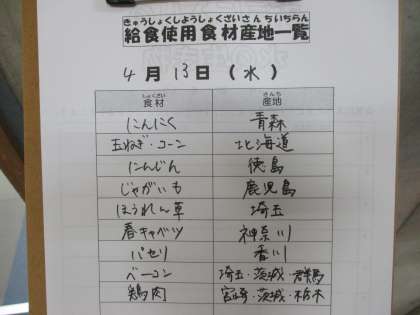 きゅうしょくしようしょくざいさんちいちらん
給食使用食材産地一覧
4月13日(水)
しょくざい さんち
食材 産地
にんにく 青森
玉ねぎ・コーン 北海道
にんじん 徳島
じゃがいも 鹿児島
ほうれん草 埼玉
春キャベツ 神奈川
パセリ 香川
ベーコン 埼玉・茨城・群馬
鶏肉 宮崎・茨城・栃木